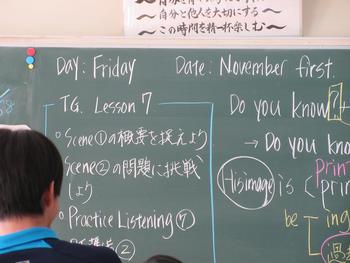 〜自分と他人を大切にする〜
〜この時間を精一杯楽しむ〜
DAY: Friday Date: November first.
TG. Lesson 7
Scene①の概要を捉えよう
Scene②の問題に挑戦しよう
Practice Listening⑦
②
Do you know?
→ Do you know
His image is
be ing